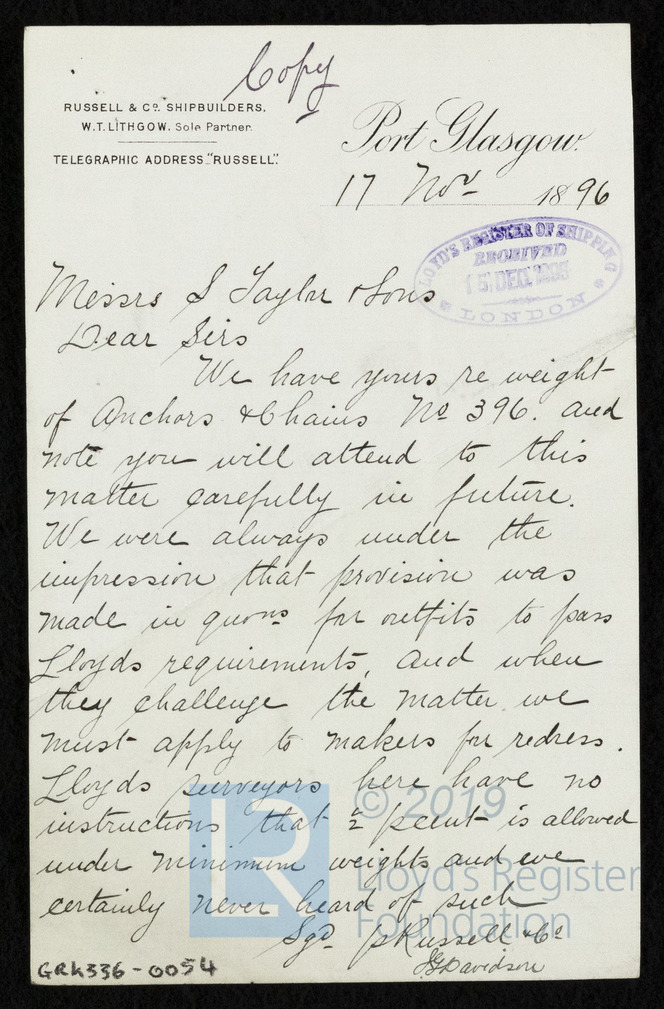 Copy
RUSSELL & Co. SHIPBUILDERS.
W.T. LITHGOW, Sole Partner.
TELEGRAPHIC ADDRESS "RUSSELL".
Port Glasgow.
17 Novr 1896
LLOYD'S REGISTER OF SHIPPING
RECEIVED
15 DEC. 1896
LONDON
Messrs S Taylor & Sons
Dear Sirs
We have yours re weight
of Anchors & Chains No 396. and
note you will attend to this
matter carefully in future.
We were always under the
impression that provision was
made in quons for outfits to pass
Lloyds requirements, and when
they challenge the matter we
must apply to makers for redress.
Lloyds surveyors here have no
instructions that pcent is allowed
under minimum weights and we
certainly never heard of such
Sgd pRussell & Co
Davidson
GRK336-0054
LR
© 2019
Lloyd's Register
Foundation